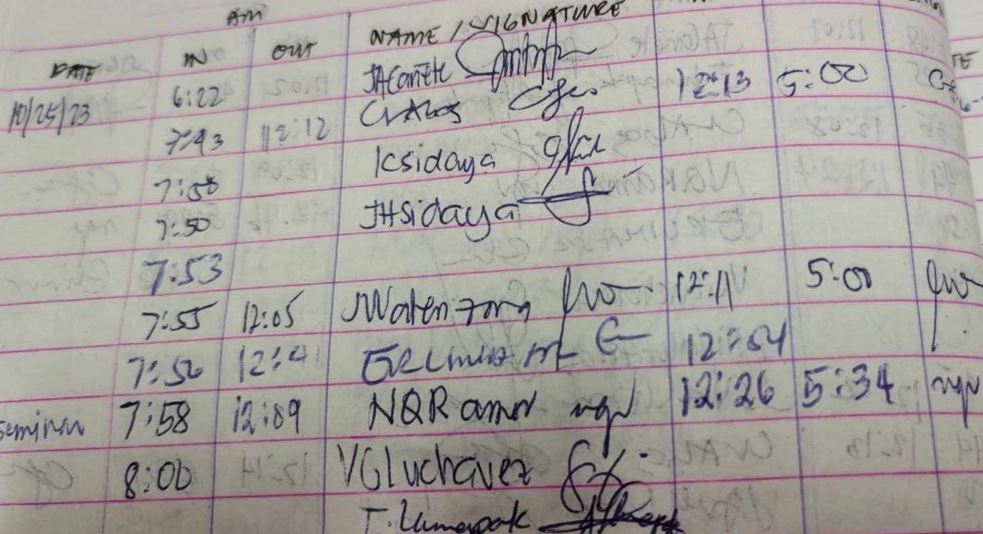 AM
DATE IN OUT NAME / SIGNATURE
10/25/23 6:22 JACañete
7:43 12:12 CVAbas 12:13 5:00
7:58 Ksidaya
7:50 JHSidaya
7:53
7:55 12:05 12:11 5:00
7:56 12:41 12:54
seminar 7:58 12:09 NQRamor 12:26 5:34
8:00 VGLuchavez
T. Lumapak